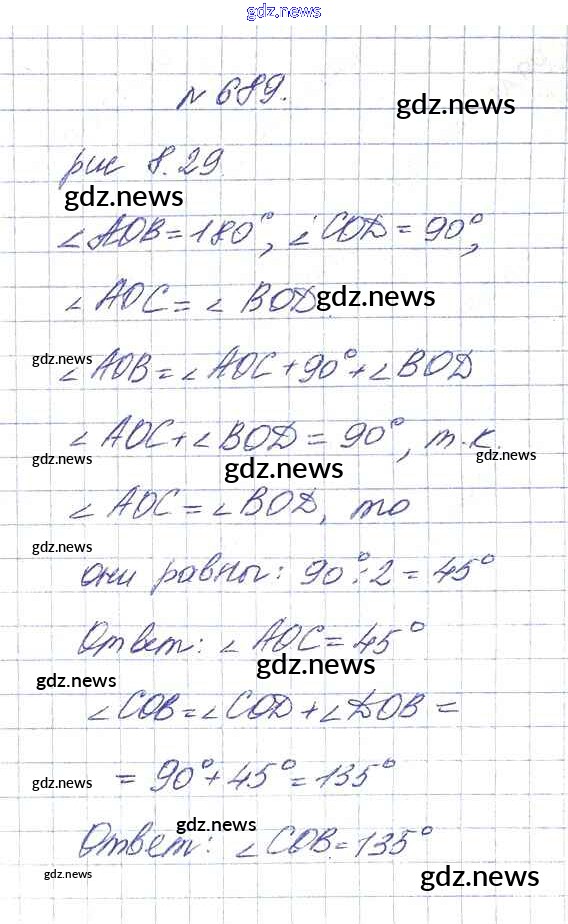 gdz.news
№ 689.
gdz.news
рис 8.29
gdz.news
∠AOB = 180°, ∠COD = 90°,
∠AOC = ∠BOD gdz.news
gdz.news
∠AOB = ∠AOC + 90° + ∠BOD
∠AOC + ∠BOD = 90°, т.к.
gdz.news gdz.news gdz.news
∠AOC = ∠BOD, то
gdz.news
они равны: 90° : 2 = 45°
Ответ: ∠AOC = 45°
gdz.news gdz.news
∠COB = ∠COD + ∠DOB =
= 90° + 45° = 135°
gdz.news
gdz.news
Ответ: ∠COB = 135°
gdz.news gdz.news